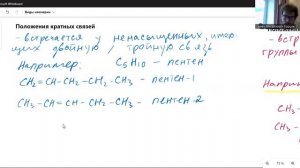 Положения кратных связей
- встречается у ненасыщенных, имею
щих двойную / тройную связь
Например: C5H10 - пентен
CH2=CH-CH2-CH2-CH3 - пентен-1
CH3-CH=CH-CH2-CH3 - пентен-2
Положени
- встр
группы
Напри
CH3-
CH3-